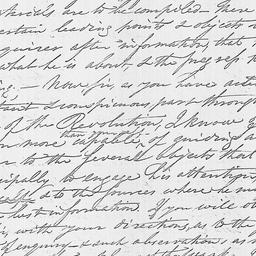 terials are to be compiled. There
certain leading points & objects
quires after information, that
what he is about, & the
— Now Sir, as you have
tant & conspicuous part through
of the Revolution, I know
than yourself
more capable, of guiding
to the several objects that
cipally to engage his attention
& to the sources where he
best information. If you will
with your directions, as to the
of enquiry — & such observation, as